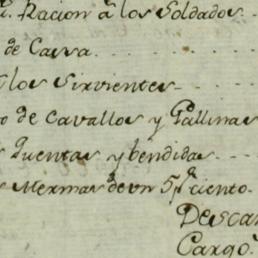 Racion á los Soldados
de Cassa
los Sirvientes
de Cavallos y Gallinas
Quentas y bendidas
Mermas de un 5 p.r ciento
Descar
Cargo